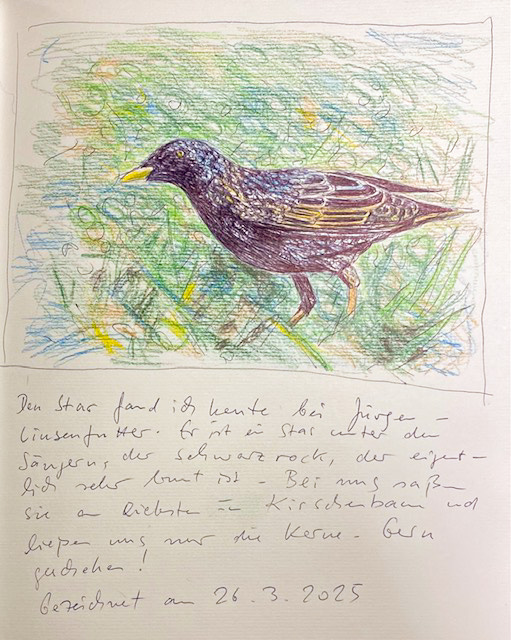 Den Star fand ich heute bei Jürgen –
Linsenfutter. Er ist ein Star unter den
Sängern, der Schwarzrock, der eigent–
lich sehr bunt ist – Bei uns saßen
sie am liebsten im Kirschenbaum und
ließen uns nur die Kerne – Gern
geschehen!
Gezeichnet am 26.3.2025